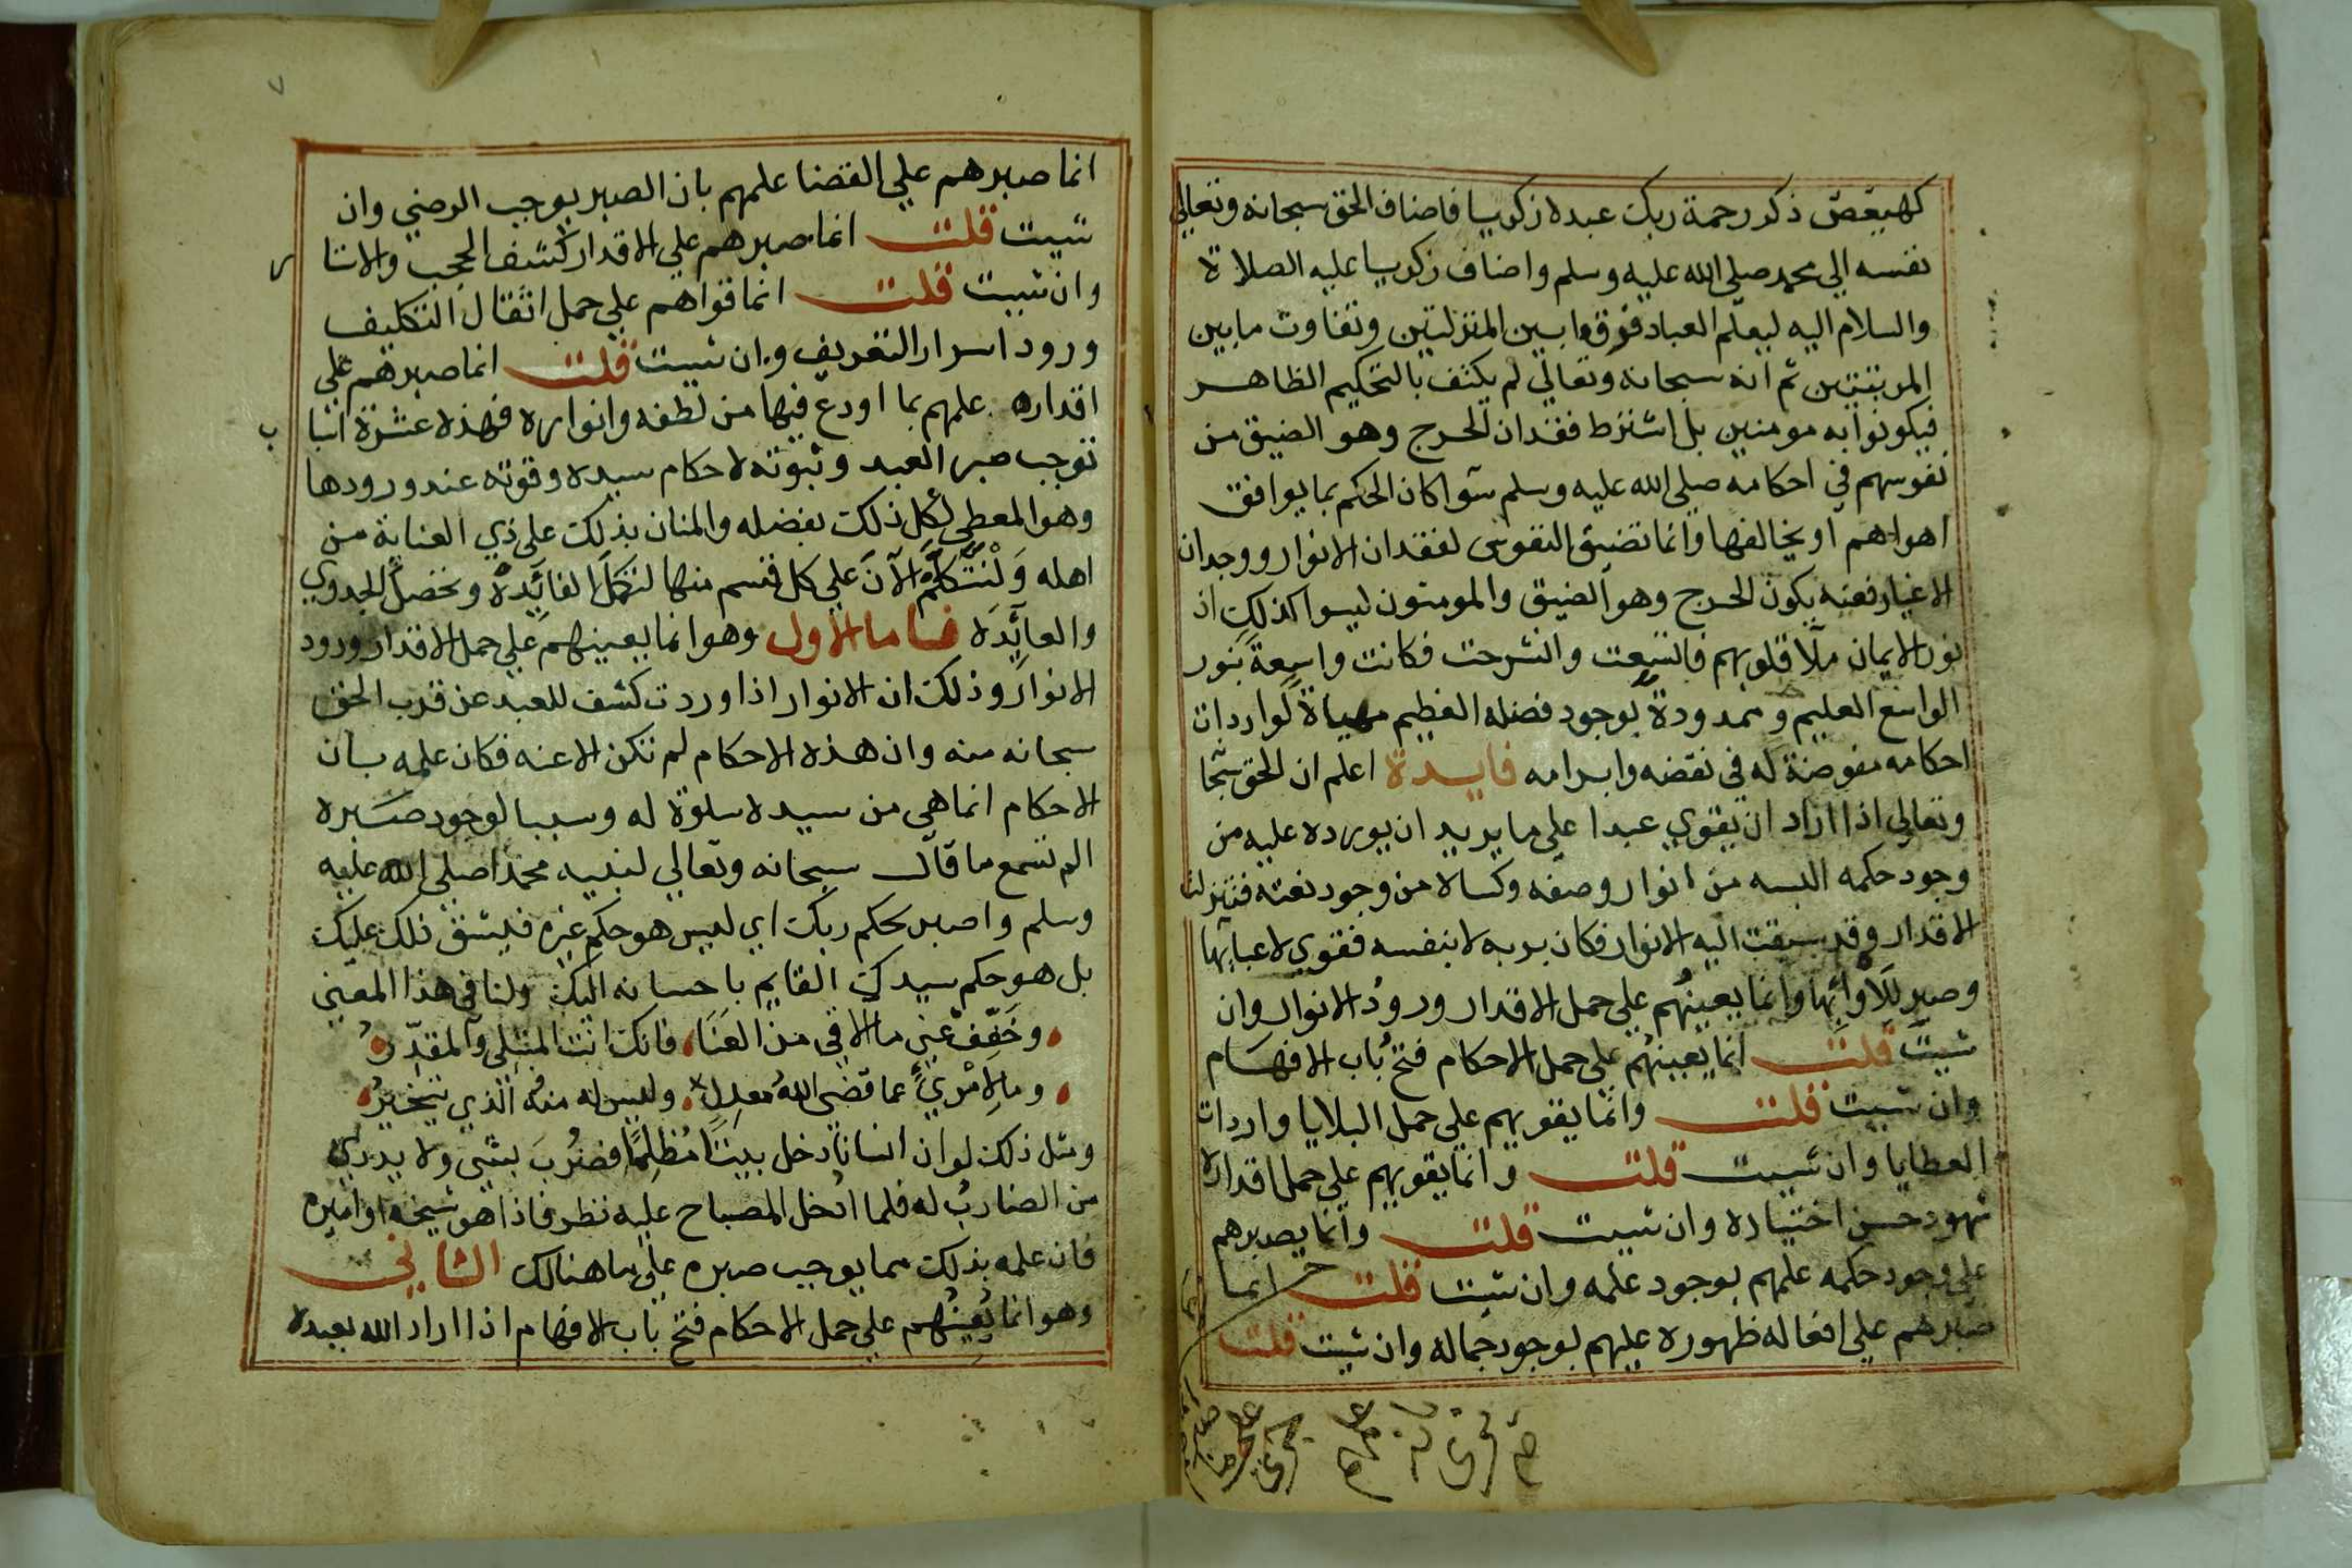 كهيعص ذكر رحمة ربك عبده زكريا فاضاف الحق سبحانه وتعالي
نفسه الي محمد صلي الله عليه وسلم واضاف زكريا عليه الصلاة
والسلام اليه ليعلم العباد فرق ما بين المنزلتين وتفاوت ما بين
المرتبتين ثم انه سبحانه وتعالي لم يكتف بالتحكيم الظاهر
فيكونوا به مومنين بل اشترط فقدان الحرج وهو الضيق من
نفوسهم في احكامه صلي الله عليه وسلم سوا كان الحكم بما يوافق
اهواهم او يخالفها وانما تضيق النفوس لفقدان الانوار ووجدان
الاغيار فعنه يكون الحرج وهو الضيق والمومنون ليسوا كذلك اذ
نور الايمان ملا قلوبهم فاتسعت وانشرحت فكانت واسعة بنور
الواسع العليم وممدودة بوجود فضله العظيم مهياة لواردات
احكامه مفوضة له في نقضه وابرامه فايدة اعلم ان الحق سبحا
وتعالي اذا اراد ان يقوي عبدا علي ما يريد ان يورده عليه من
وجود حكمه البسه من انوار وصفه وكساه من وجود نعته فتنزلت
الاقدار وقد سبقت اليه الانوار فكان بربه لا بنفسه فقوي لاعبايها
وصبر للاوائها وانما يعينهم علي حمل الاقدار ورود الانوار وان
شيت قلت انما يعينهم علي حمل الاحكام فتح باب الافهام
وان شيت قلت وانما يقويهم علي حمل البلايا واردات
العطايا وان شيت قلت وانما يقويهم علي حمل اقداره
شهود حسن اختياره وان شيت قلت وانما يصبرهم
علي وجود حكمه علمهم بوجود علمه وان شيت قلت انما
صبرهم علي افعاله ظهوره عليهم بوجود جماله وان شيت قلت
انما صبرهم علي القضا علمهم بان الصبر يوجب الرضي وان
شيت قلت انما صبرهم علي الاقدار كشف الحجب والاستا
وان شيت قلت انما قواهم علي حمل اثقال التكليف
ورود اسرار التعريف وان شيت قلت انما صبرهم علي
اقداره علمهم بما اودع فيها من لطفه وانواره فهذه عشرة اسبا
توجب صبر العبد وثبوته لاحكام سيده وقوته عند ورودها
وهو المعطي لكل ذلك بفضله والمنان بذلك علي ذي العناية من
اهله وَلْنَتَكَلَّم الآنَ علي كل قسم منها لتكمل الفائِدة وتحصل الجدوي
والعائِدَة فاما الاول وهو انما يعينهم علي حمل الاقدار ورود
الانوار وذلك ان الانوار اذا وردت كشف للعبد عن قرب الحق
سبحانه منه وان هذه الاحكام لم تكن الا عنه فكان علمه بان
الاحكام انما هي من سيده سلوة له وسببا لوجود صبره
الم تسمع ما قال سبحانه وتعالي لنبيه محمدا صلي الله عليه
وسلم واصبر لحكم ربك اي ليس هو حكم غيره فيشق ذلك عليك
بل هو حكم سيدك القايم باحسانه اليك ولنا في هذا المعني
وخَفِّفَ عَنِي ما الاقي من العَنَا فانك انت المبتلي والمقدِّرُ
وما لِامْرِئً عما قضي اللهُ معدل وليس له منه الذي يتخيرُ
ومثل ذلك لو ان انسانا دخل بيتًا مُظلِمًا فضُرِبَ بشي ولا يدري
من الضارب له فلما ادخل المصباح عليه نظر فاذا هو شيخه او اميره
فان علمه بذلك مما يوجب صبره علي ما هنالك الثاني
وهو انما يُعِينُهم علي حمل الاحكام فتح باب الافهام اذا اراد الله بعبده